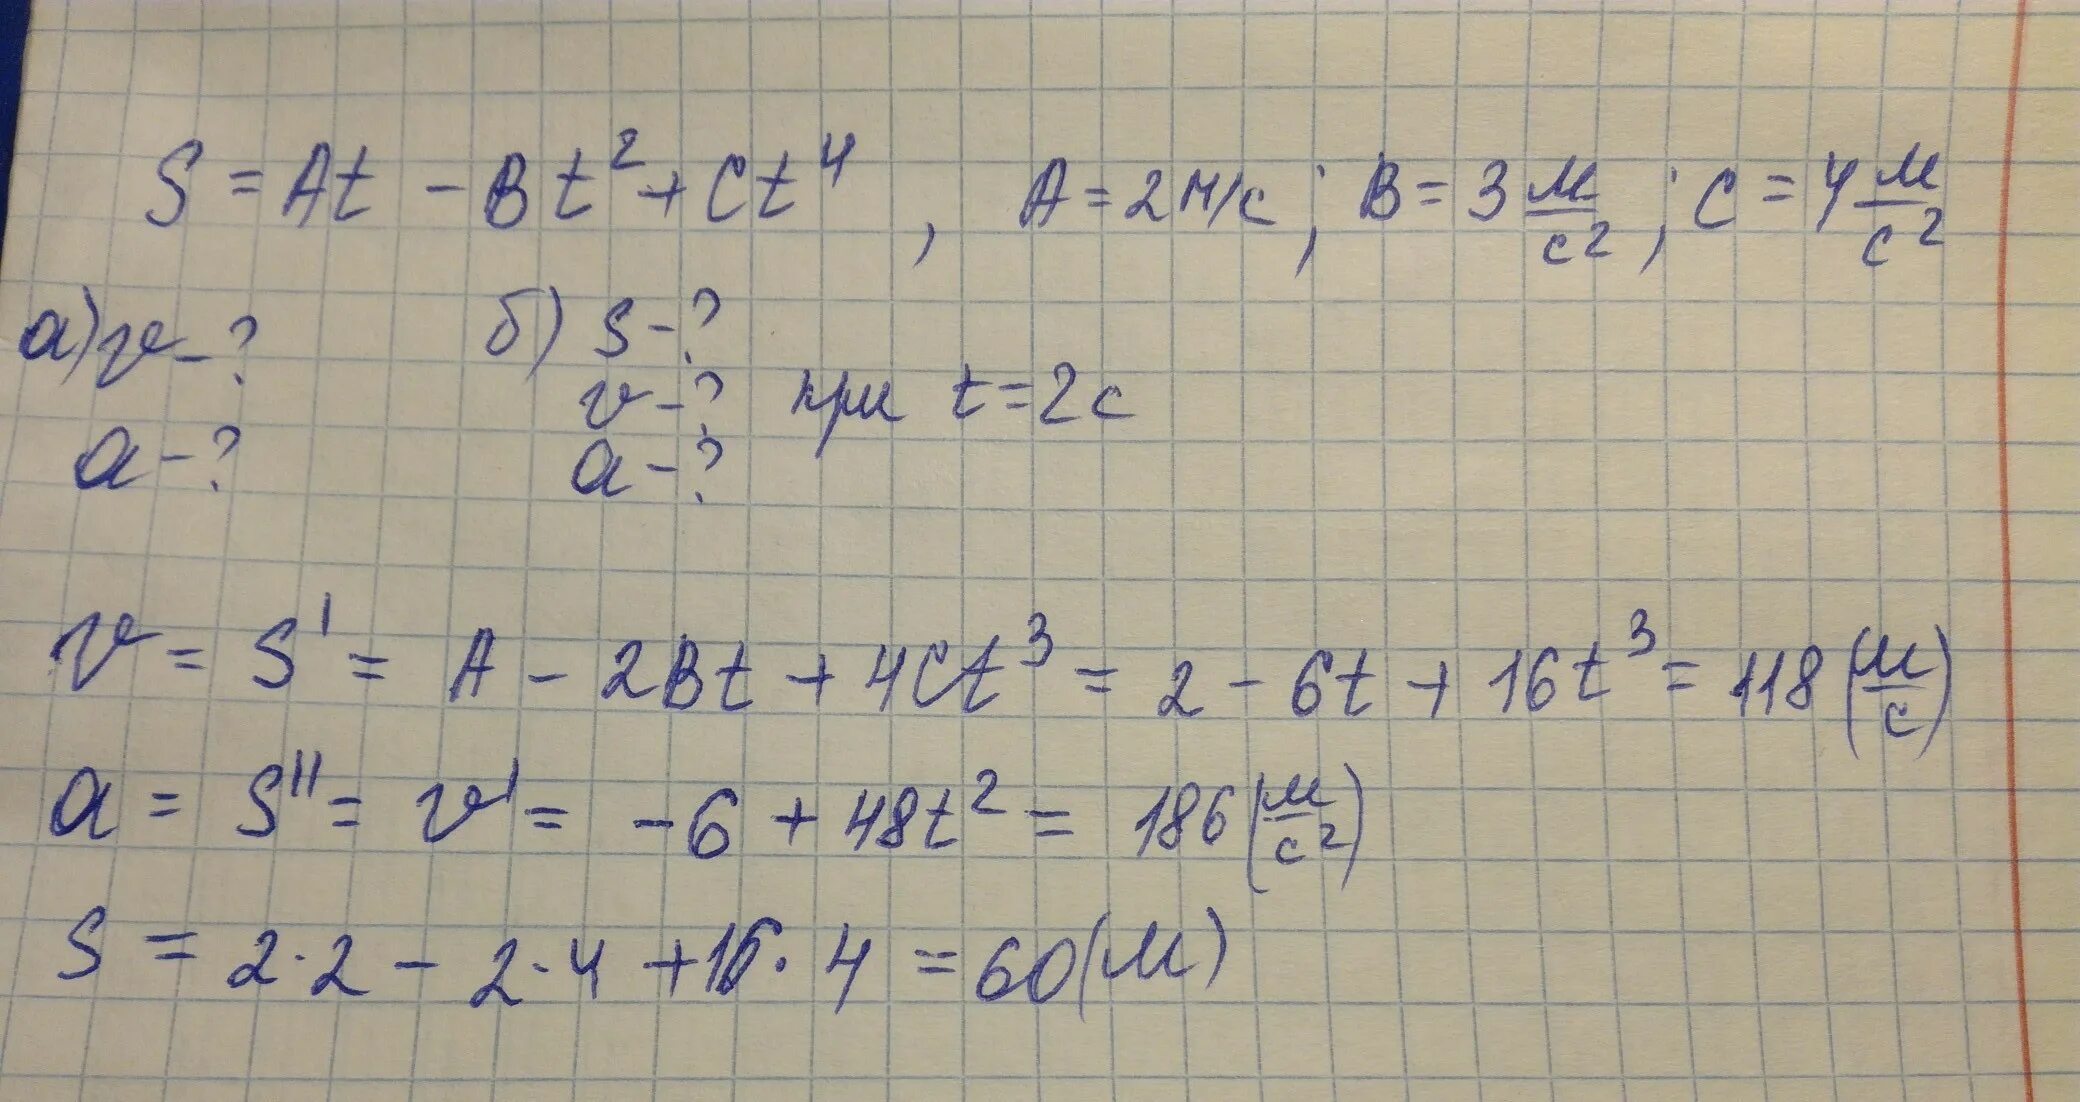 S = At - Bt² + Ct⁴, A = 2 м/с; B = 3 м/с²; C = 4 м/с²
а) v - ? б) s - ?
v - ? при t = 2 с
a - ? a - ?
v = S' = A - 2Bt + 4Ct³ = 2 - 6t + 16t³ = 118 (м/с)
a = S'' = v' = -6 + 48t² = 186 (м/с²)
S = 2·2 - 2·4 + 16·4 = 60 (м)